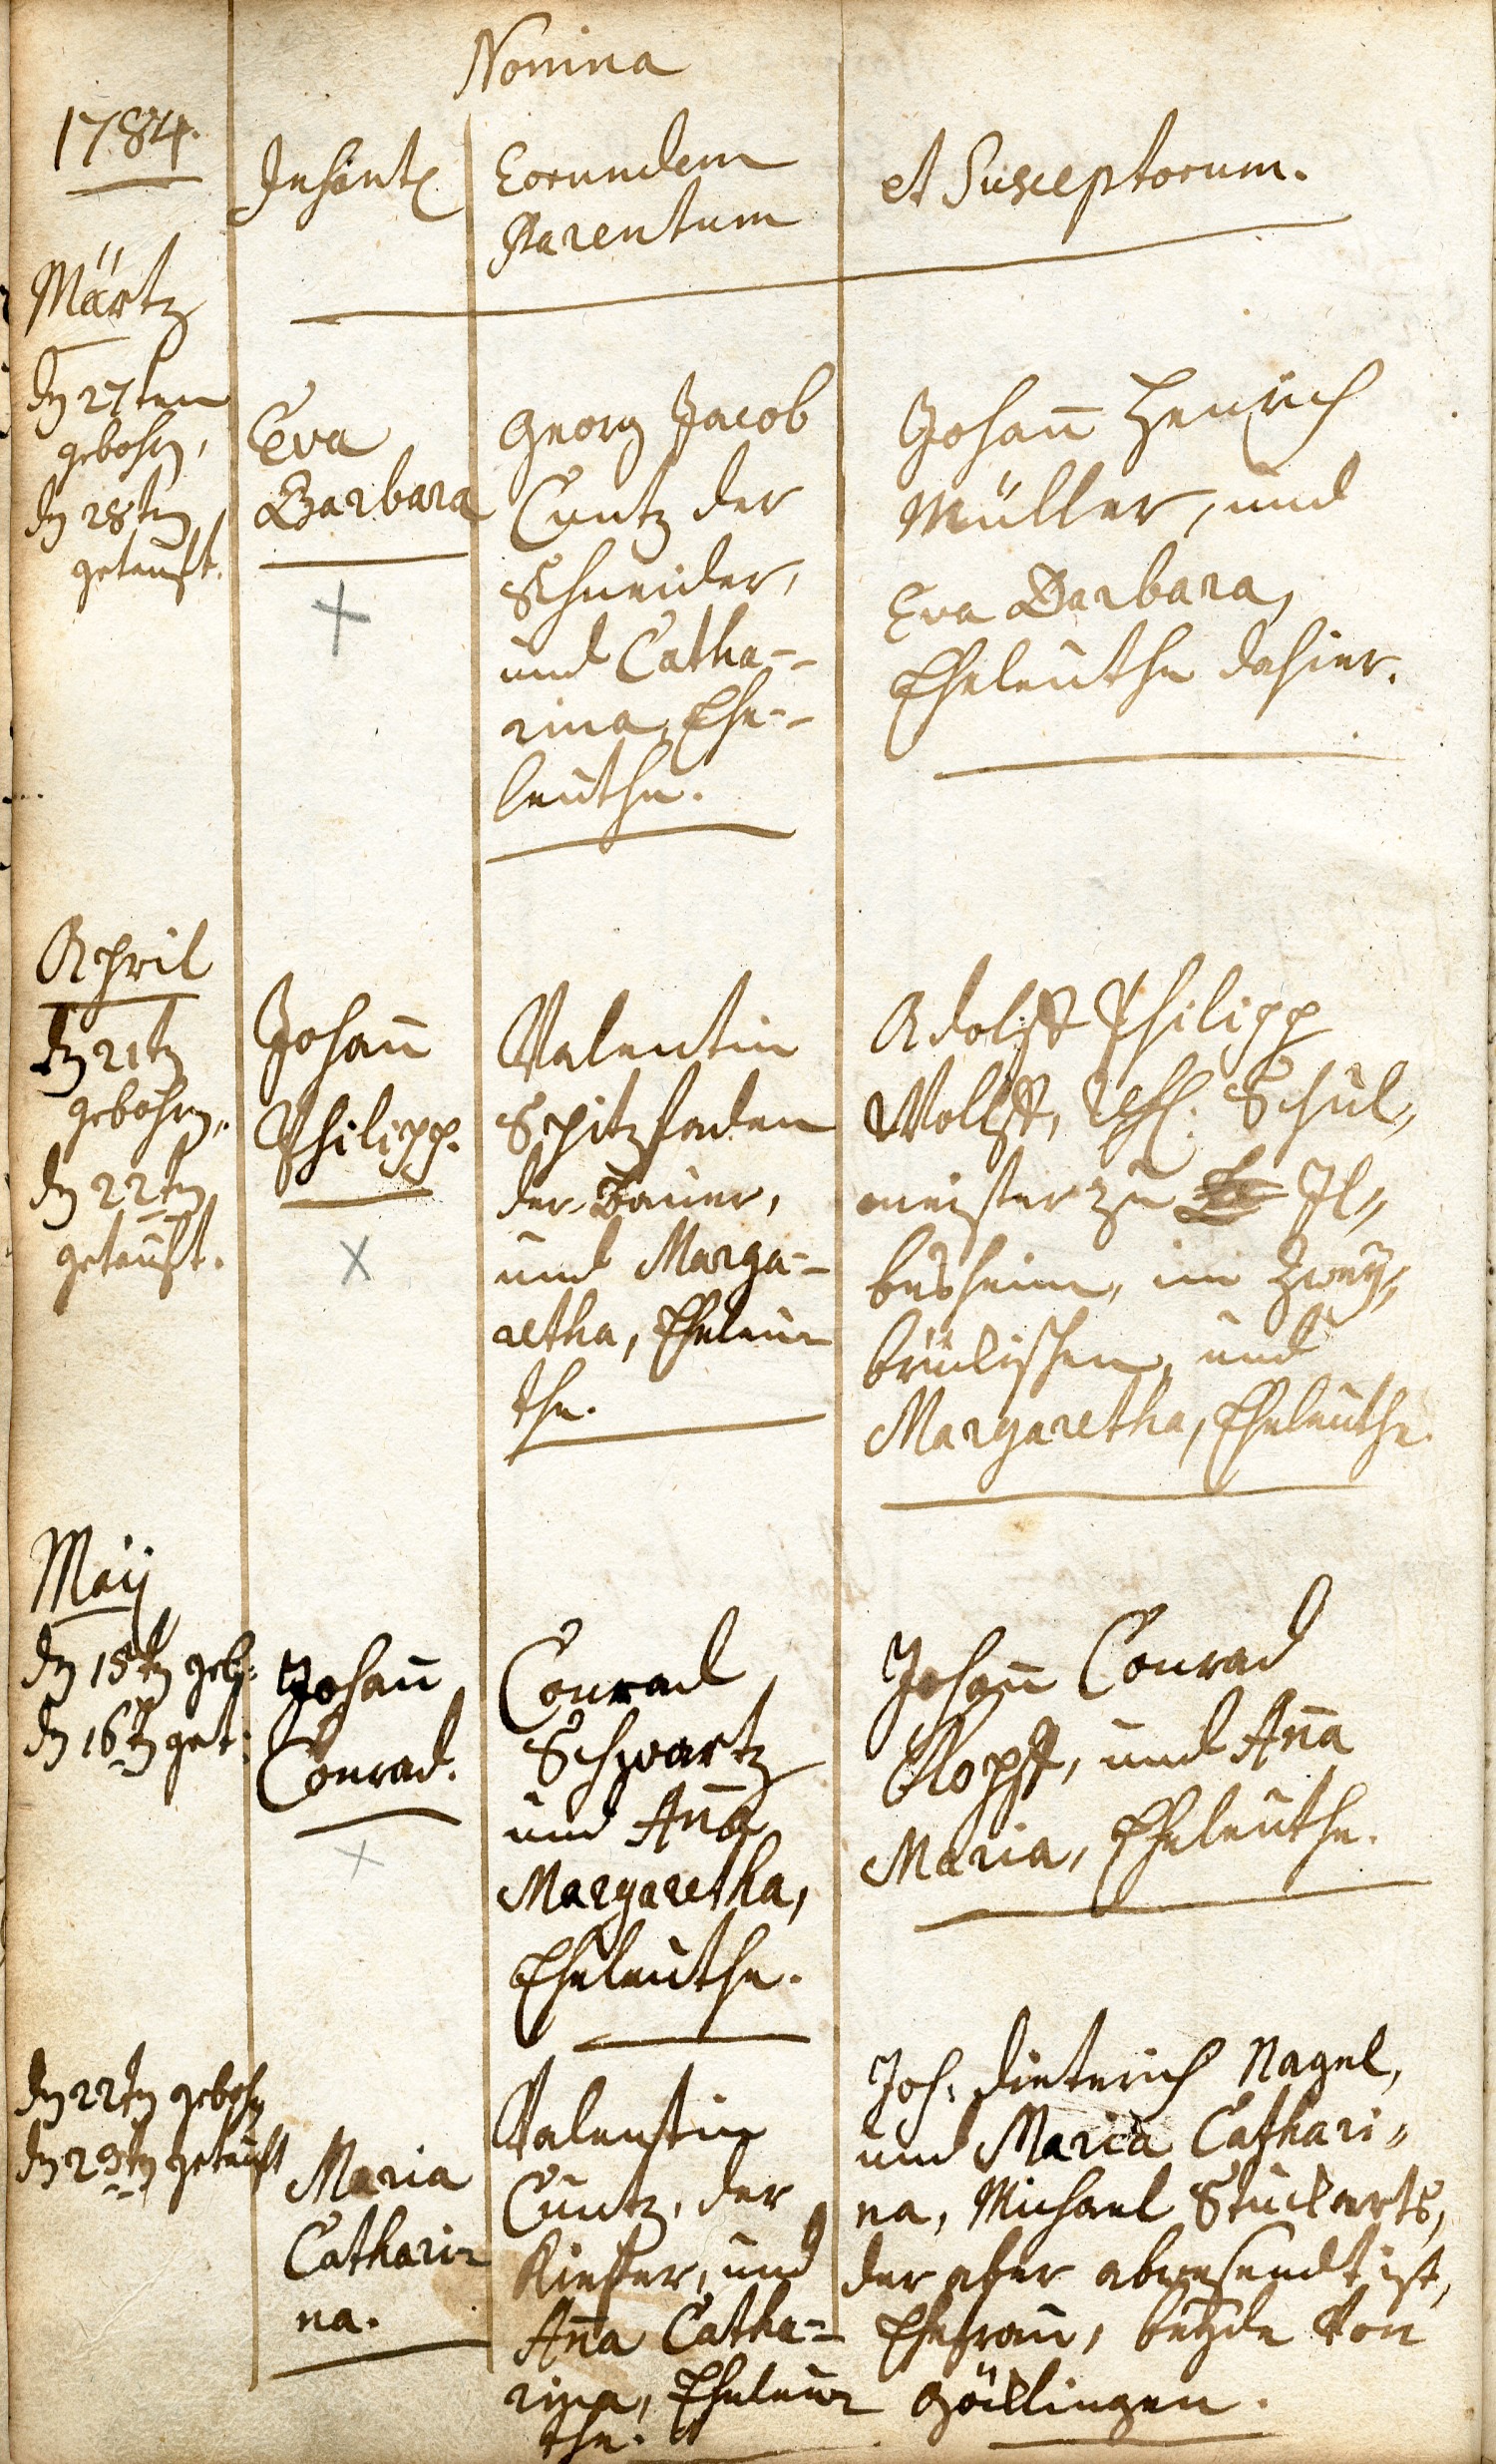 Nomina
1784.
Infant.
Eorundem
Parentum
et Susceptorum.
Märtz
dn 27ten
gebohrn,
dn 28tn
getauft.
Eva
Barbara
Georg Jacob
Cuntz der
Schneider,
und Catha-
rina, Ehe-
leuthe.
Johan̄ Henrich
Müller, und
Eva Barbara,
Eheleuthe dahier.
April
dn 21tn
gebohrn,
dn 22tn
getauft.
Johan̄
Philipp.
Valentin
Spitzfaden
der Bauer,
und Marga-
retha, Eheleu-
the.
Adolff Philipp
Wolff, Schul,,
meister zu Il,,
besheim, im Zwey,,
brückischen, und
Margaretha, Eheleuthe.
Maij
dn 15tn geb:
dn 16tn get:
Johan̄
Conrad.
Conrad
Schwartz
und An̄a
Margaretha,
Eheleuthe.
Johan̄ Conrad
Klopff, und An̄a
Maria, Eheleuthe.
dn 22tn gebohrn
dn 23tn getauft
Maria
Cathari-
na.
Valentin
Cuntz, der
Kieffer, und
An̄a Catha-
rina, Eheleu-
the.
Joh: Dieterich Nagel,
und Maria Cathari-
na, Michael Stuckerts,
der aber abwesendt ist,
Ehefrau, beyde von
Göcklingen.